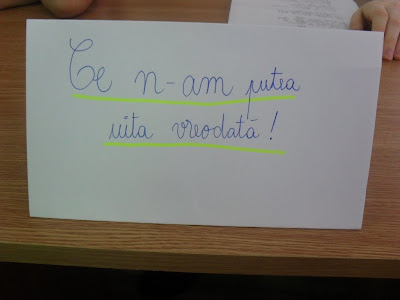 Ce n-am putea
uita vreodată!